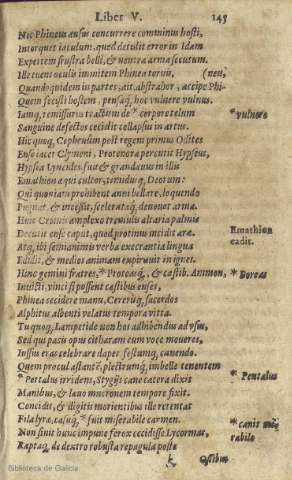 Liber V. 145
Nec Phineus ausus concurrere comminus hosti,
Intorquet iaculum, quod detulit error in Idam
Expertem frustra belli, & neutra arma secutum.
Ille tuens oculis immitem Phinea toruis, (neu,
Quandoquidem in partes, ait, abstrahor, accipe Phi-
Quem fecisti hostem, pensaq́, hoc vulnere vulnus.
Iamq́, remissurus tractum de * corpore telum * vulnere
Sanguine defectos cecidit collapsus in artus.
Hic quoq, Cephenum post regem primus Odites
Ense iacet Clymeni, Protenora percutit Hypseus,
Hypsea Lyncides. fuit & grandæuus in illis
Emathion æqui cultor, timidusq́, Deorum:
Qui quoniam prohibent anni bellare, loquendo
Pugnat, & incessit, scelerataq́, deuouet arma.
Huic Cromis amplexo tremulis altaria palmis
Decutit ense caput, quod protinus incidit aræ. Emathion
Atq, ibi semianimi verba execrantia lingua cadit.
Edidit, & medios animam expirauit in ignes.
Hinc gemini fratres, * Proteasq́, & cæstib. Ammon, * Boreas
Inuicti, vinci si possent cæstibus enses,
Phinea cecidere manu, Cererisq́, sacerdos
Alphitus albenti velatus tempora vitta.
Tu quoq, Lampetide non hos adhibendus ad vsus,
Sed qui pacis opus citharam cum voce moueres,
Iussus eras celebrare dapes festumq́, canendo.
Quem procul astantē, plectrumq́, imbelle tenentem
* Pettalus irridens, Stygijs cane cætera dixit * Pentalus
Manibus, & læuo mucronem tempore fixit.
Concidit, & digitis morientibus ille retentat
Fila lyræ, casuq́, * fuit miserabile carmen. * canit
Non sinit hunc impune ferox cecidisse Lycormas, rabile
Raptaq́, de dextro robusta repagula poste
k Ossibus
Biblioteca de Galicia